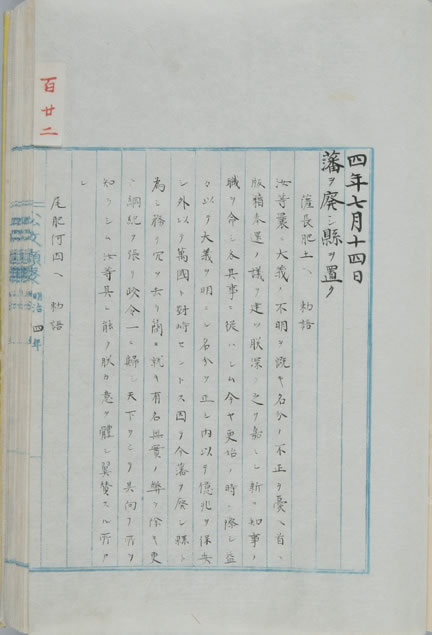 百廿二
四年七月十四日
藩ヲ廃シ縣ヲ置ク
薩長肥土ヘ　勅語
汝等曩ニ大義ノ不明ヲ慨キ名分ノ不正ヲ憂ヘ首ニ
版籍奉還ノ議ヲ建ツ朕深ク之ヲ嘉ミシ新ニ知事ノ
職ヲ命シ各其事ニ從ハシム今ヤ更始ノ時ニ際シ益
々以テ大義ヲ明ニシ名分ヲ正シ内以テ億兆ヲ保安
シ外以テ萬國ト對峙セントス因テ今藩ヲ廃シ縣ト
為シ務テ冗ヲ去リ簡ニ就キ有名無實ノ弊ヲ除キ更
ニ綱紀ヲ張リ政令一ニ歸シ天下ヲシテ其向フ所ヲ
知ラシム汝等其レ能ク朕カ意ヲ體シ翼賛スル所ア
レ
尾肥阿因ヘ　勅語
四年